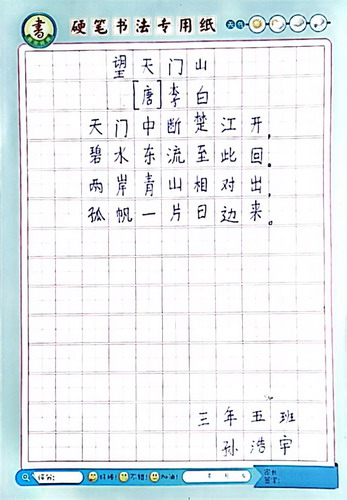 書
硬笔书法专用纸
望天门山
[唐]李白
天门中断楚江开,
碧水东流至此回。
两岸青山相对出,
孤帆一片日边来。
三年五班
孙浩宇
评分:
好棒! 不错! 加油!